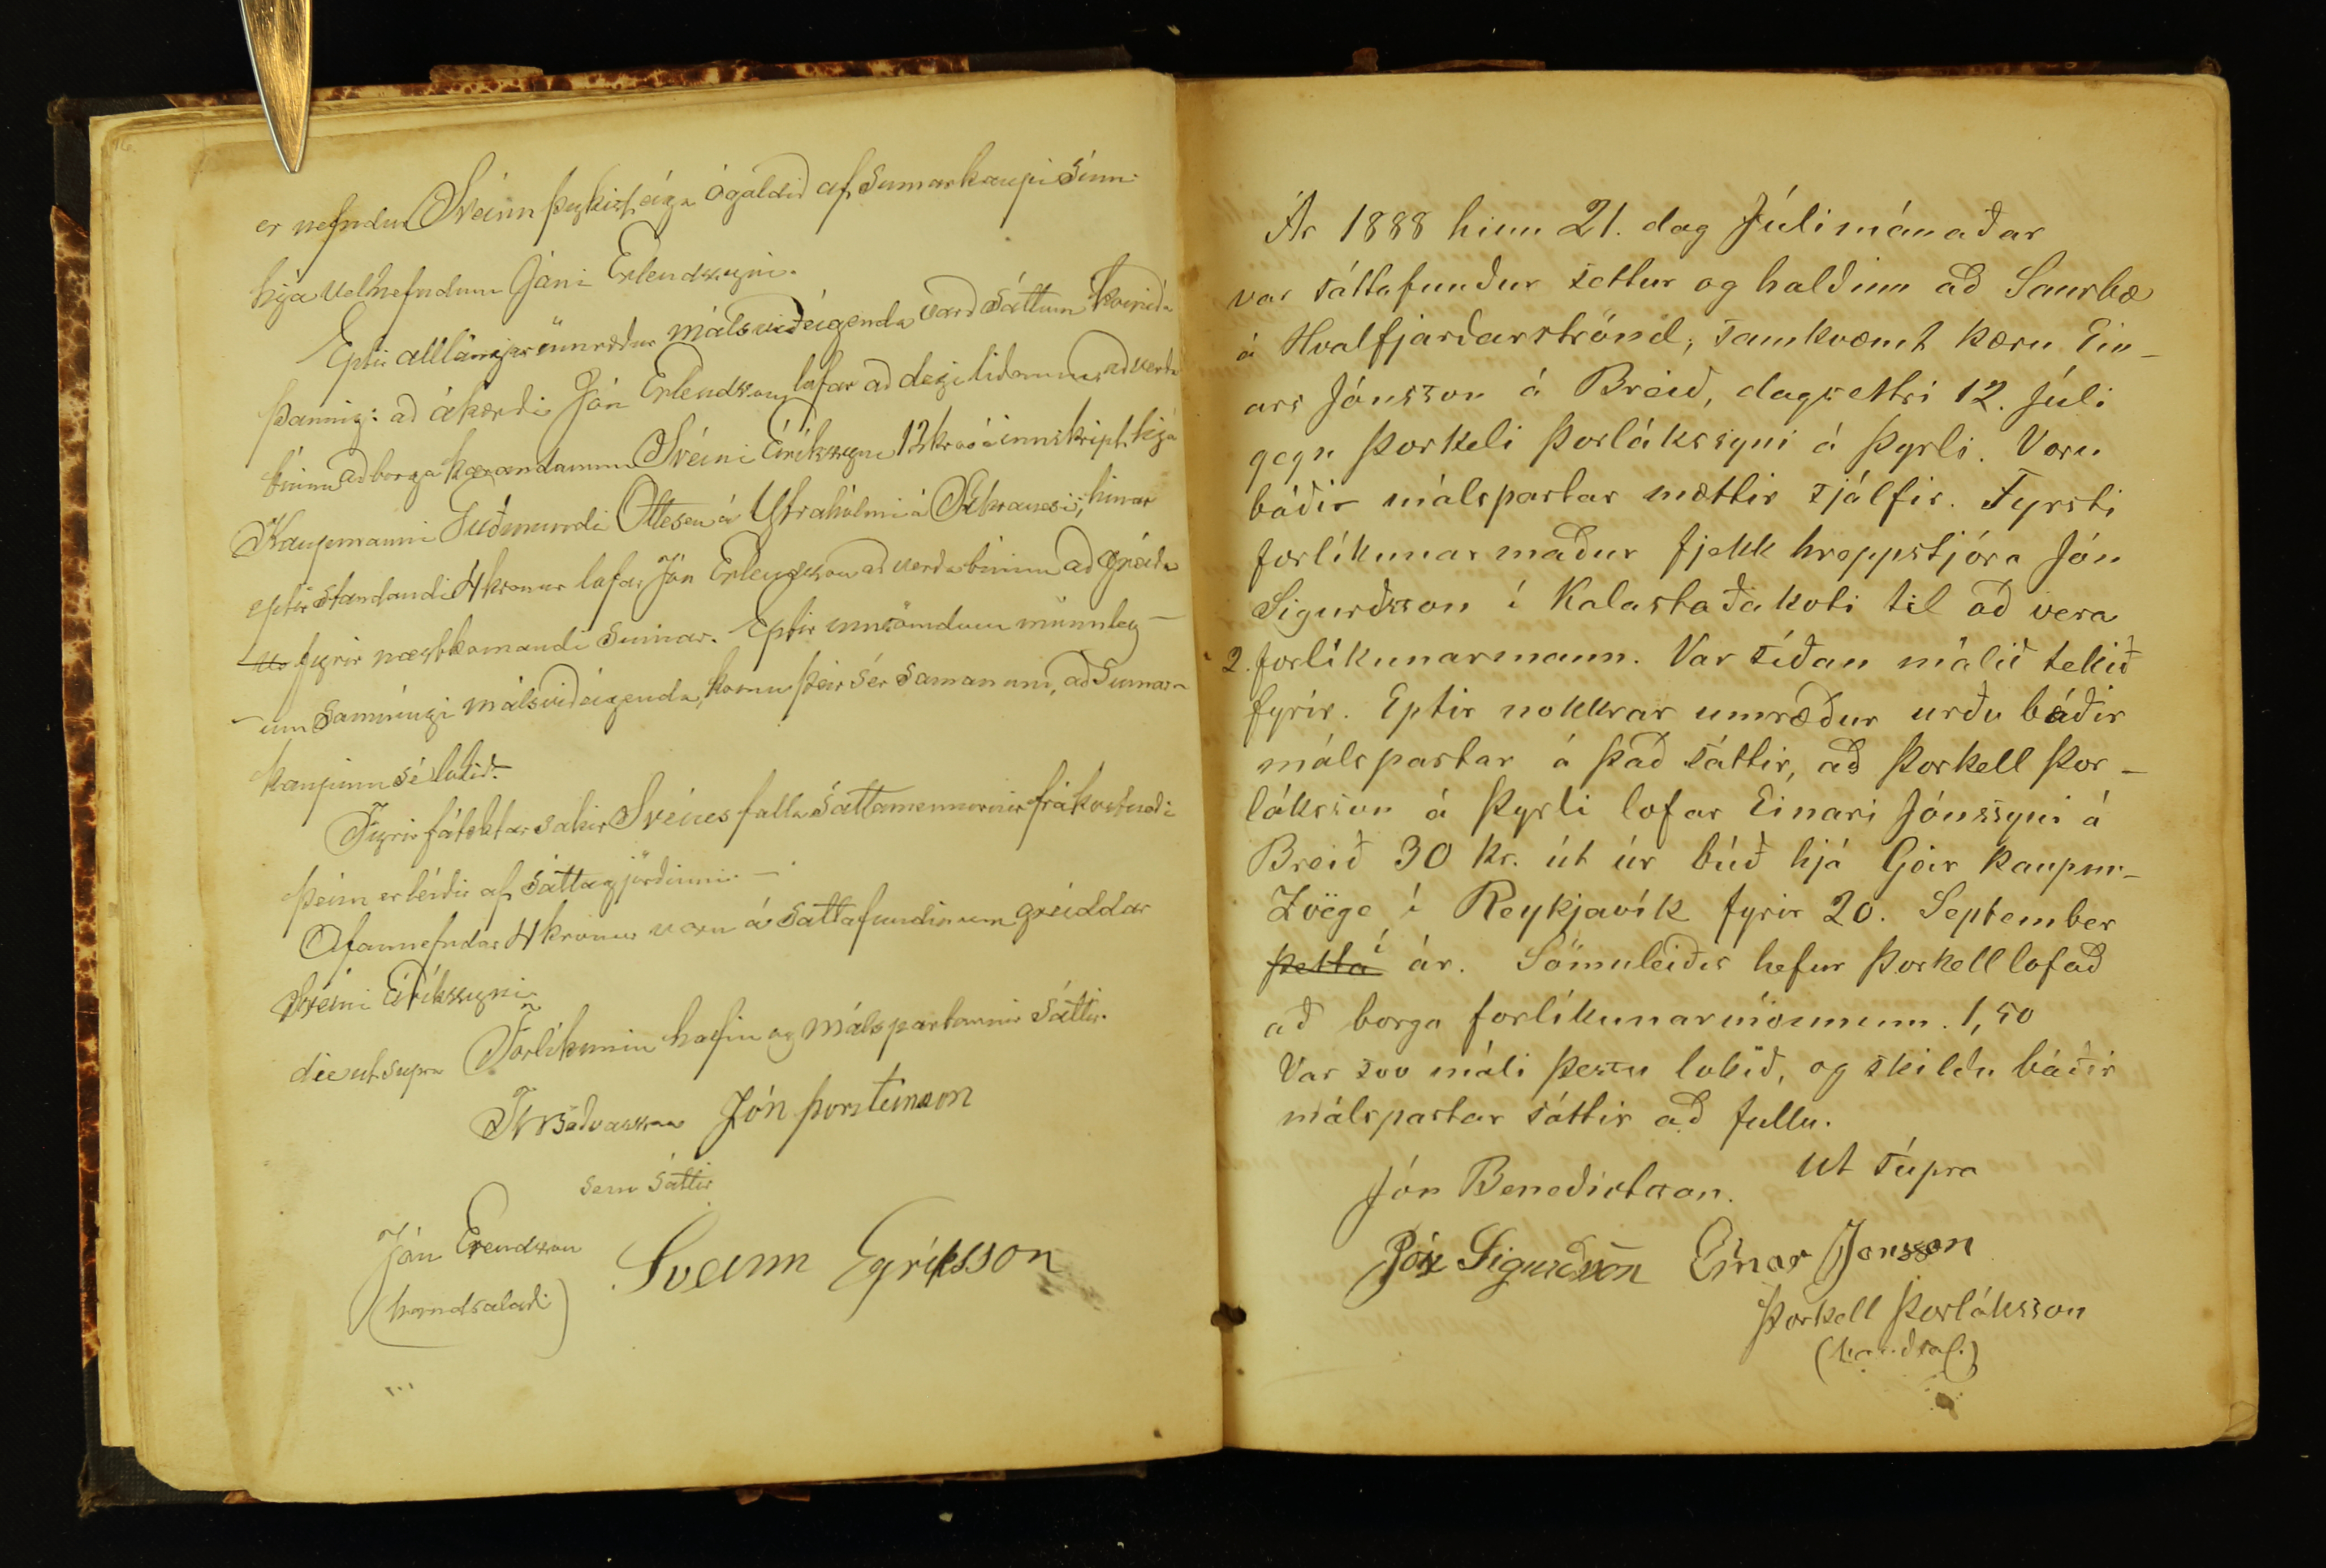 16.
er nefndur Sveinn þykist eiga ógoldið af sumarkaupi sínu
hja velnefndum Jóni Erlendssyni.
Eptir alllángar umræður málsviðeigenda varð sáttum komið á
þannig: að ákærði Jón Erlendsson lofar að degi liðnum að verða
búinn að borga kærandanum Sveini Eirikssyni 12 kr í innskript hjá
Kaupmanni Guðmundi Ottesen á Ytrahólmi á Akranesi; hinar
eptirstandandi 4 kronur lofar Jón Erlendsson að verða búinn að greiða
fyrir næstkomandi sumar. Eptir munnleg-
-um samningi málsviðeigenda, komu þeir sér saman um, að sumar-
kaupinu sé lokið.
Fyrir fátæktar sakir Sveins falla sáttamennirnir frá kostnaði
þeim er leiðir af sáttagjörðinni. —
Ofannefndar 4 kronur voru á sáttafundinum greiddar
Sveini Eirikssyni
die ut supra Forlikunin hafin og málspartarnir sáttir.
Böðvarsson Jón Þorsteinsson
sem sáttir
Jón Erendsson Sveinn Eyriksson
(handsalaði)
Ár 1888 hinn 21. dag Júlimánaðar
var sáttafundur settur og haldinn að Saurbæ
á Hvalfjarðarströnd, samkvæmt kæru Ein-
ars Jónsson á Breið, dagsettri 12. Júli
gegn Þorkeli Þorlákssyni á Þyrli. Voru
báðir málspartar mættir sjálfir. Fyrsti
forlíkunarmaður fjekk hreppstjóra Jón
Sigurðsson í Kalastaðakoti til að vera
2. forlíkunarmann. Var síðan málið tekið
fyrir. Eptir nokkrar umræður urðu báðir
málspartar á það sáttir, að Þorkell Þor-
láksson á Þyrli lofar Einari Jónssyni á
Breið 30 kr. út úr búð hjá Geir kaupm-
Zoëge í Reykjavík fyrir 20. September
þetta í ár. Sömuleiðis hefur Þorkell lofað
að borga forlíkunarmönnunum 1,50
Var svo máli þessu lokið, og skildu báðir
málspartar sáttir að fullu.
Ut súpra
Jón Benediktsson.
Jón Sigurdsson Einar Jonsson
Þorkell Þorláksson
(handsal.)